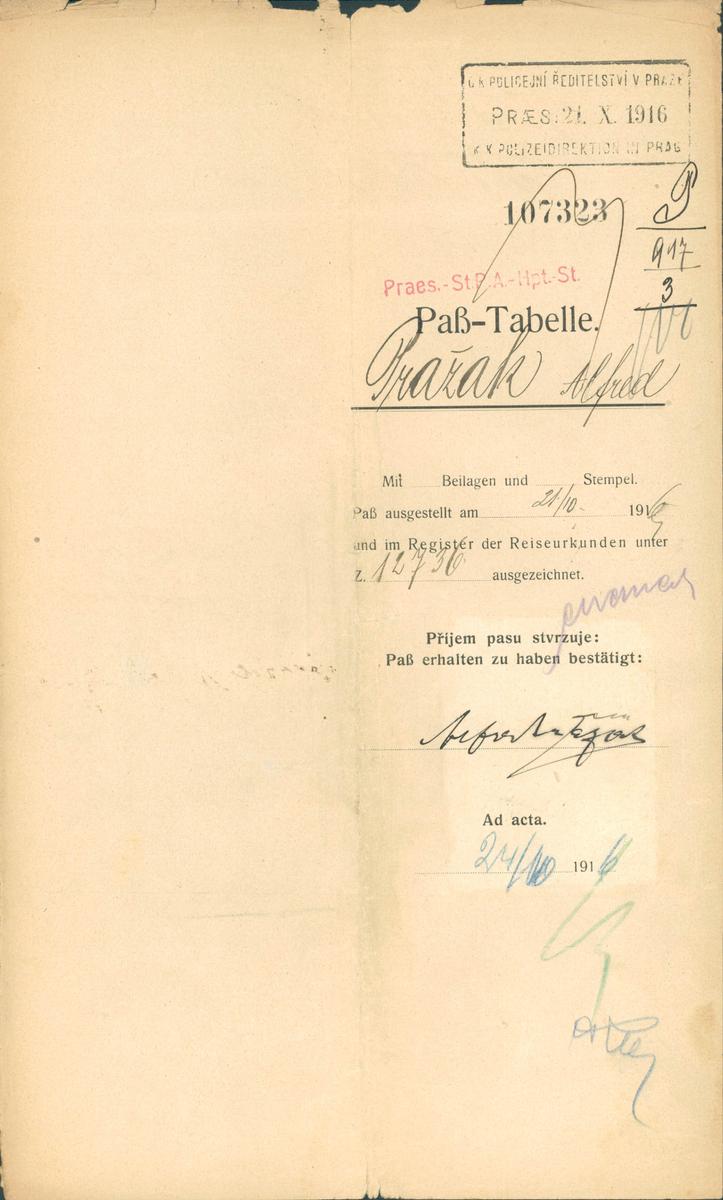 C.K. POLICEJNÍ ŘEDITELSTVÍ V PRAZE
PRÆS: 21. X. 1916
K.K. POLIZEIDIREKTION IN PRAG
107323
P
917
3
Praes.-St.P.A.-Hpt.-St.
Paß-Tabelle.
Pražák Alfred
Mit Beilagen und Stempel.
Paß ausgestellt am 21/10. 1916
und im Register der Reiseurkunden unter
Z. 12736 ausgezeichnet.
Příjem pasu stvrzuje:
Paß erhalten zu haben bestätigt:
Alfred Pražák
Ad acta.
24/10 1916